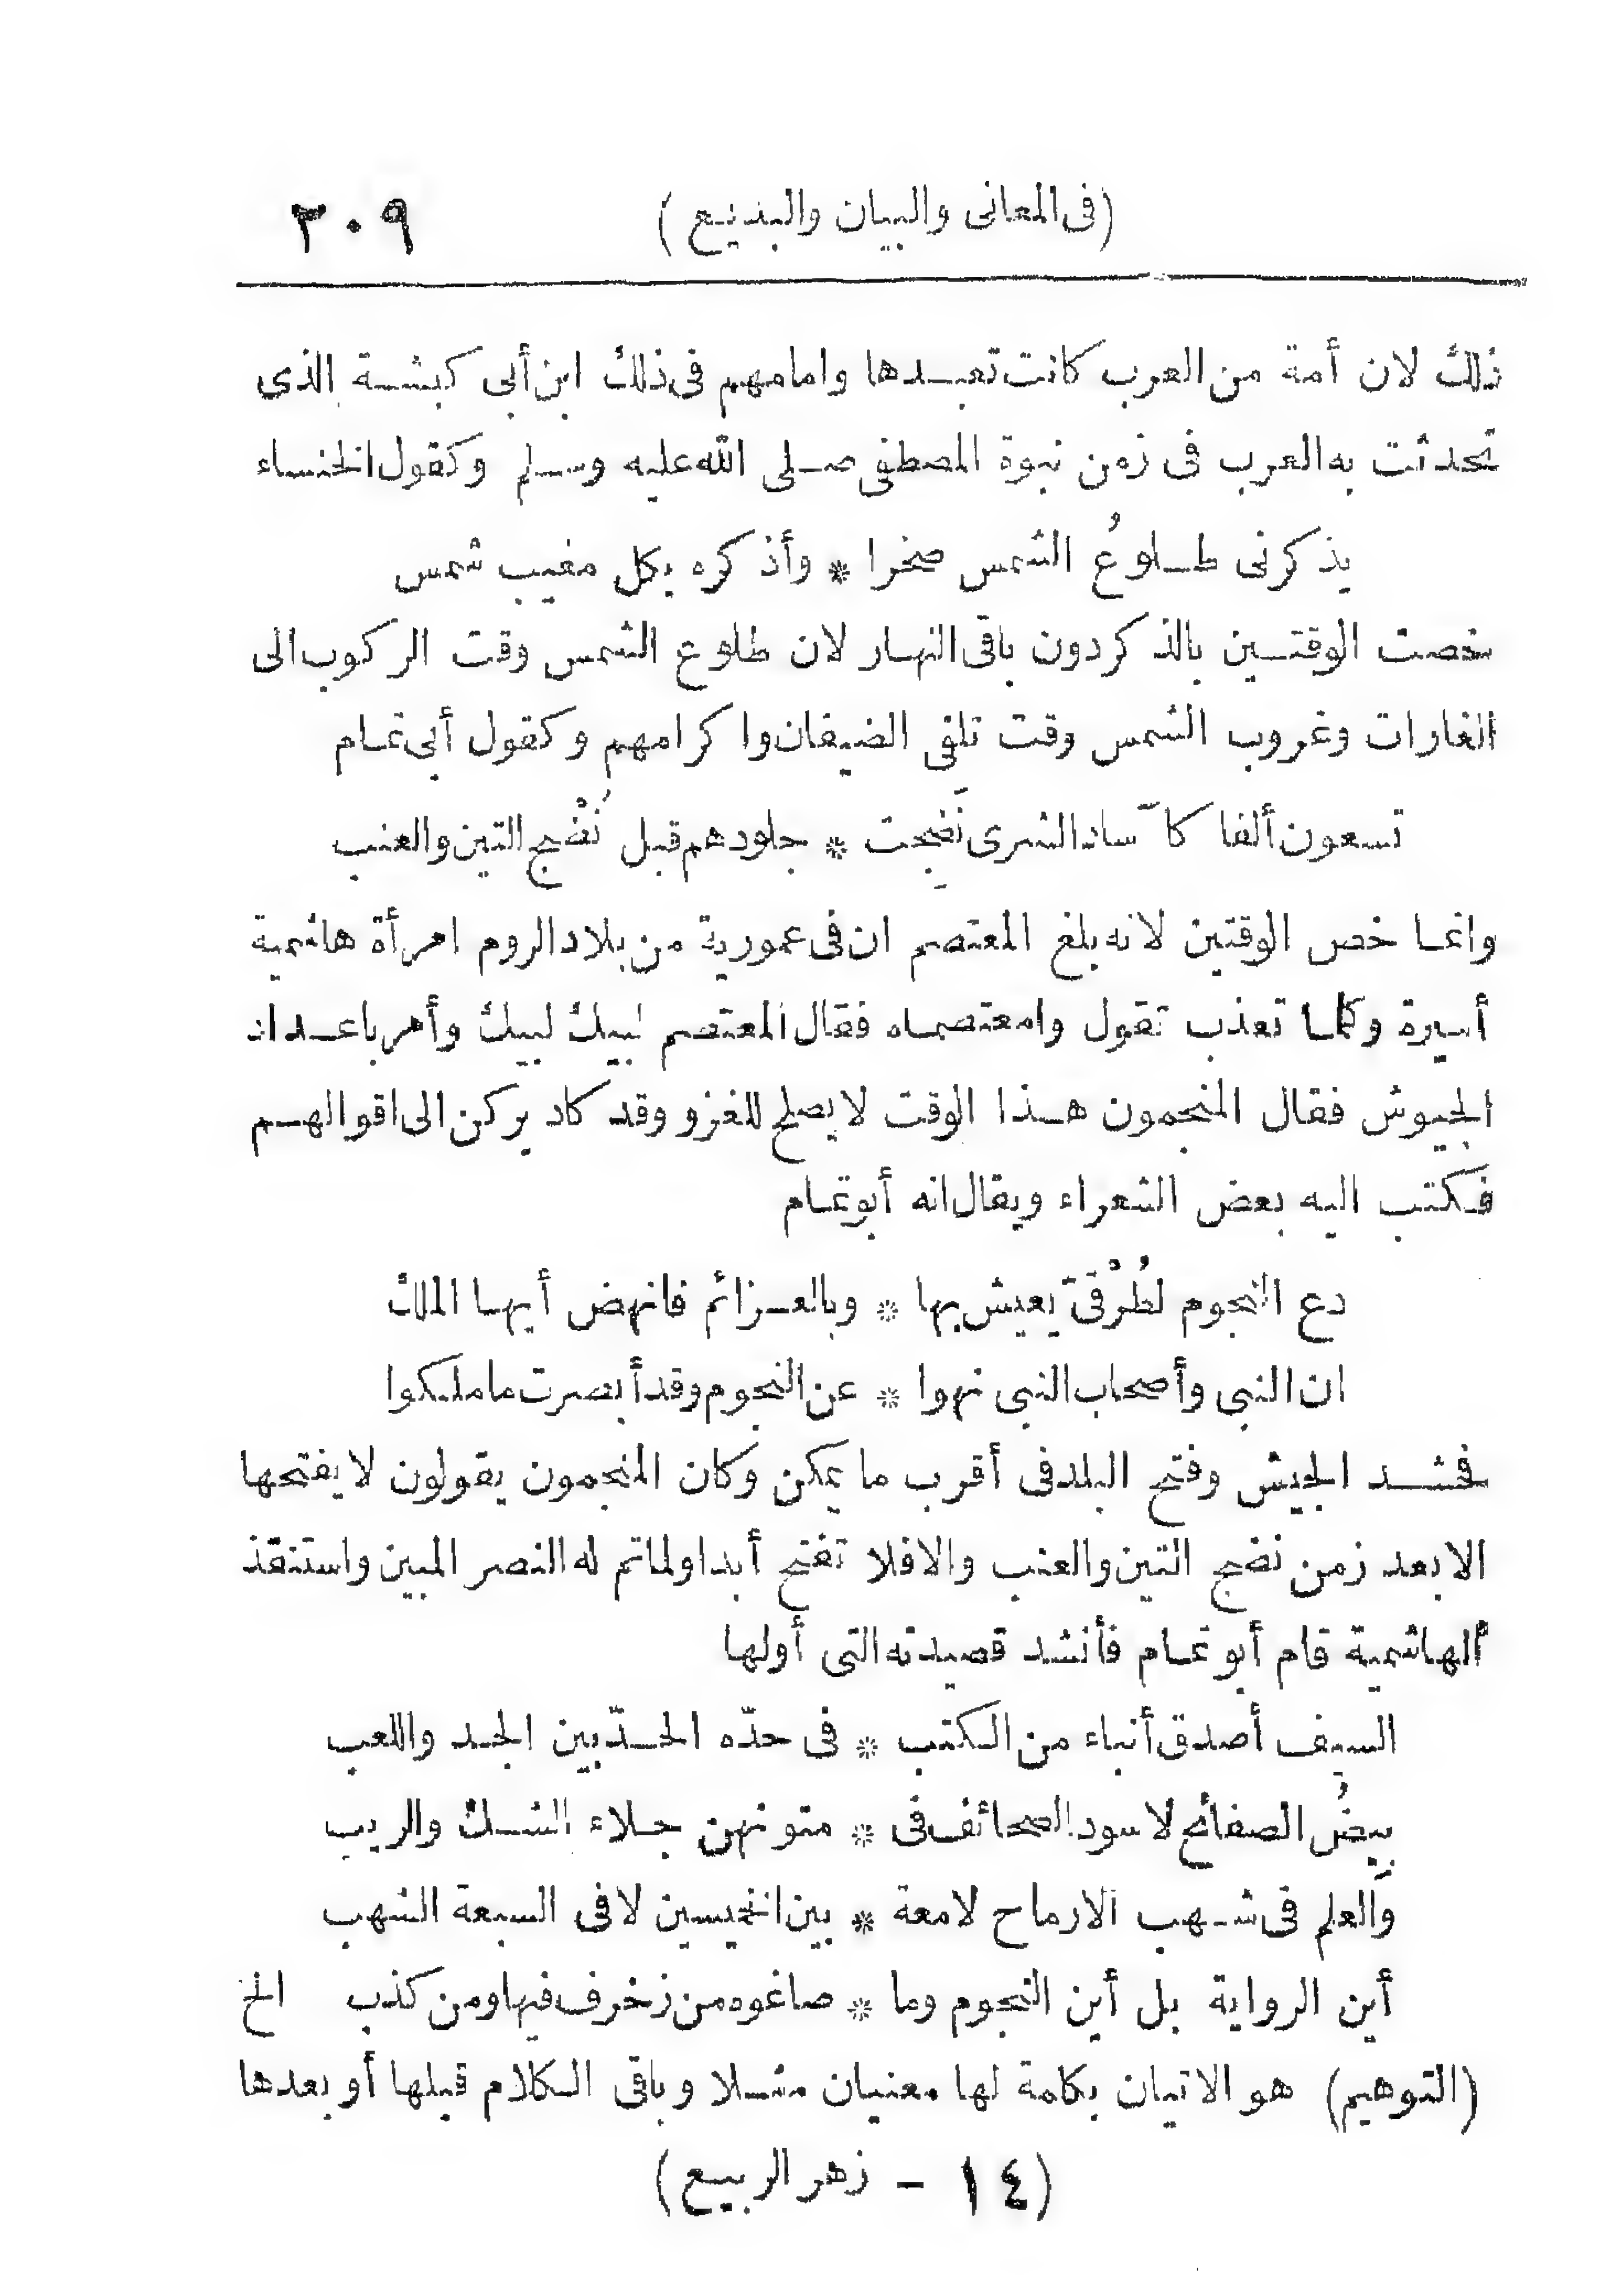 (فى المعانى والبيان والبديع) ٣٠٩
ذلك لان أمة من العرب كانت تعبدها وامامهم فى ذلك ابن أبى كبشة الذى
تحدثت به العرب فى زمن نبوة المصطفى صلى الله عليه وسلم وكقول الخنساء
يذكرنى طلوعُ الشمس صخرا * وأذكره بكل مغيب شمس
خصت الوقتين بالذكر دون باقى النهار لان طلوع الشمس وقت الركوب الى
الغارات وغروب الشمس وقت تلقى الضيفان واكرامهم وكقول أبى تمام
تسعون ألفا كآساد الشرى نَضِجت * جلودهم قبل نُضْج التين والعنب
وانما خص الوقتين لانه بلغ المعتصم ان فى عمورية من بلاد الروم امرأة هاشمية
أسيرة وكلما تعذب تقول وامعتصماه فقال المعتصم لبيك لبيك وأمر باعداد
الجيوش فقال المنجمون هذا الوقت لا يصلح للغزو وقد كاد يركن الى اقوالهم
فكتب اليه بعض الشعراء ويقال انه أبو تمام
دع النجوم لطُرْقىّ يعيش بها * وبالعزائم فانهض أيها الملك
ان النبى وأصحاب النبى نهوا * عن النجوم وقد أبصرت ما ملكوا
فحشد الجيش وفتح البلد فى أقرب ما يمكن وكان المنجمون يقولون لا يفتحها
الا بعد زمن نضج التين والعنب والا فلا تفتح أبدا ولما تم له النصر المبين واستنقذ
الهاشمية قام أبو تمام فأنشد قصيدته التى أولها
السيف أصدق أنباء من الكتب * فى حدّه الحدّ بين الجد واللعب
بيضُ الصفائح لا سود الصحائف فى * متونهن جلاء الشك والريب
والعلم فى شهب الارماح لامعة * بين الخميسين لا فى السبعة الشهب
أين الرواية بل أين النجوم وما * صاغوه من زخرف فيها ومن كذب الخ
(التوهيم) هو الاتيان بكلمة لها معنيان مثلا وباقى الكلام قبلها أو بعدها
(١٤ - زهر الربيع)